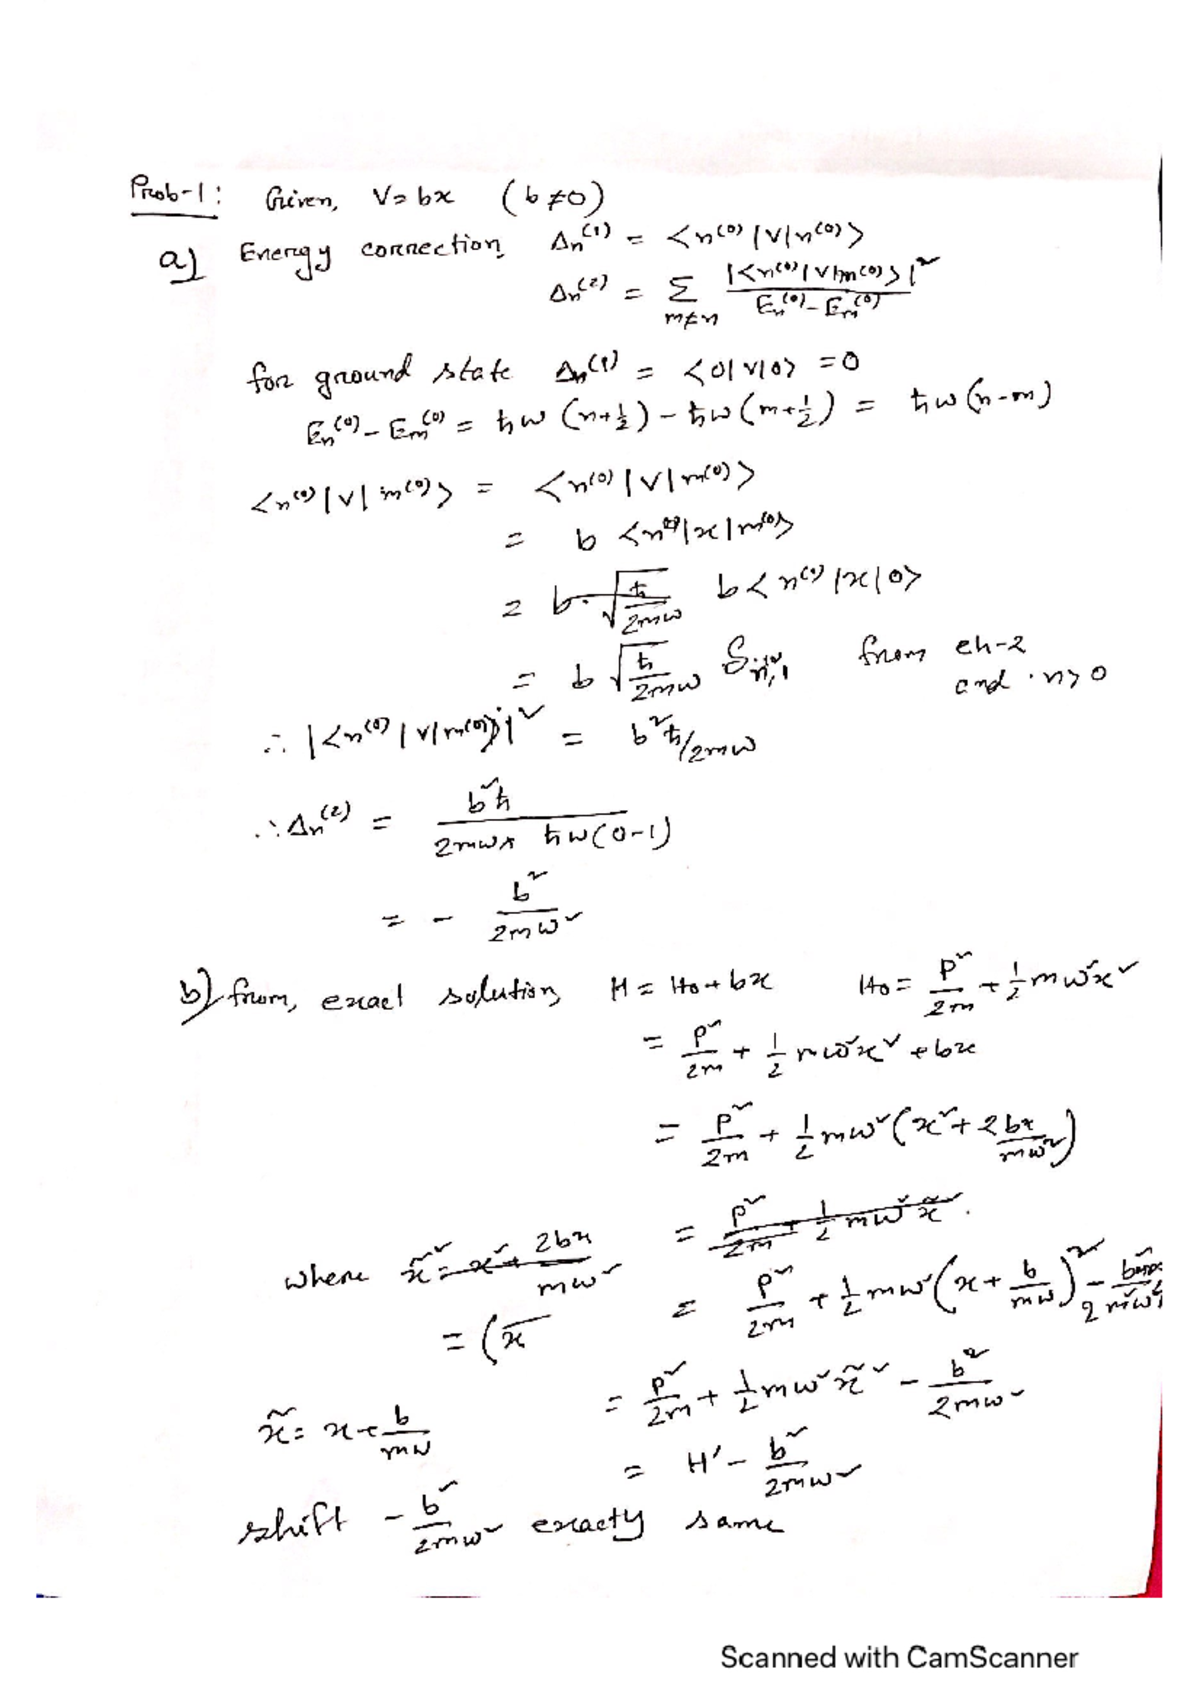 Prob-1: Given, V = bx (b ≠ 0)
a) Energy correction, Δn^(1) = <n^(0)|V|n^(0)>
Δn^(2) = Σ_{m≠n} |<n^(0)|V|m^(0)>|² / (En^(0) - Em^(0))
for ground state Δn^(1) = <0|V|0> = 0
En^(0) - Em^(0) = ħω(n+1/2) - ħω(m+1/2) = ħω(n-m)
<n^(0)|V|m^(0)> = <n^(0)|V|m^(0)>
= b <n^(0)|x|m^(0)>
= b·√(ħ/2mω) b<n^(0)|x|0>
= b √(ħ/2mω) δn,1 from ch-2
and n>0
∴ |<n^(0)|V|m^(0)>|² = b²ħ/2mω
∴ Δn^(2) = b²ħ / (2mω × ħω(0-1))
= - b²/2mω²
b) from, exact solution, H = H₀ + bx H₀ = P²/2m + 1/2 mω²x²
= P²/2m + 1/2 mω²x² + bx
= P²/2m + 1/2 mω²(x² + 2bx/mω²)
= P²/2m + 1/2 mω² x̃².
where x̃² = x² + 2bx/mω²
= P²/2m + 1/2 mω²(x + b/mω)² -
= (x
= P²/2m + 1/2 mω² x̃² - b²/2mω²
x̃ = x + b/mω
= H' - b²/2mω²
shift - b²/2mω² exacty same
Scanned with CamScanner